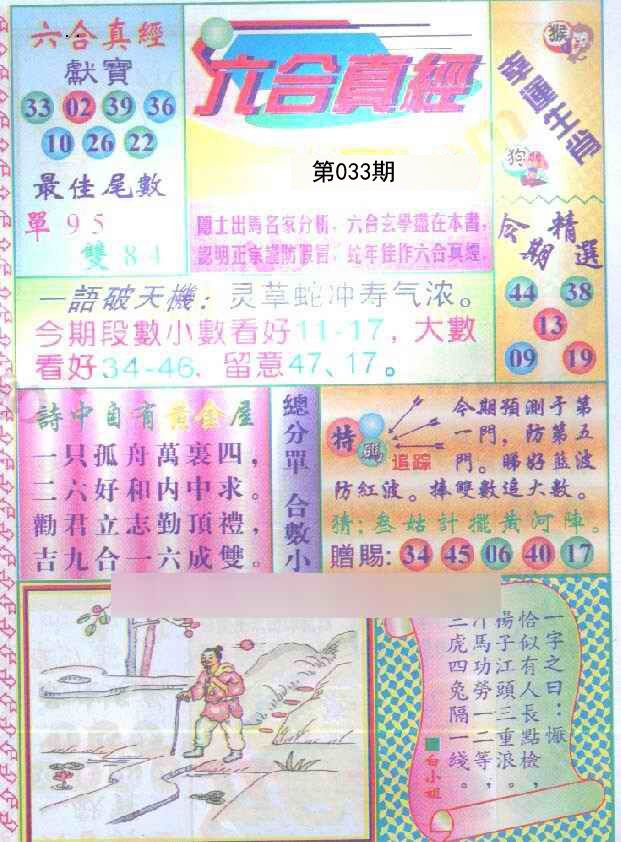 六合真經
獻寶
33 02 39 36
10 26 22
最佳尾數
單 9 5
雙 8 4
六合真經
第033期
隱士出馬名家分析，六合玄學盡在本書，
認明正宗謹防假冒，蛇年佳作六合真經。
猴
幸運生肖
狗
一語破天機：灵草蛇冲寿气浓。
今期段數小數看好11-17，大數
看好34-46，留意47、17。
今期精選
44 38
13
09 19
詩中自有黄金屋
一只孤舟萬裏四，
二六好和内中求。
勸君立志勤頂禮，
吉九合一六成雙。
總分單 合數小
特碼
追踪
今期預測于第
一門，防第五
門。睇好藍波
防紅波。捧雙數追大數。
猜：叁姑計擺黄河陣。
贈賜：34 45 06 40 17
一字之曰：
恰似有人長點檢，
楊子江頭三重浪，
汗馬功勞一二等，
三虎四兔隔一线。
白小姐